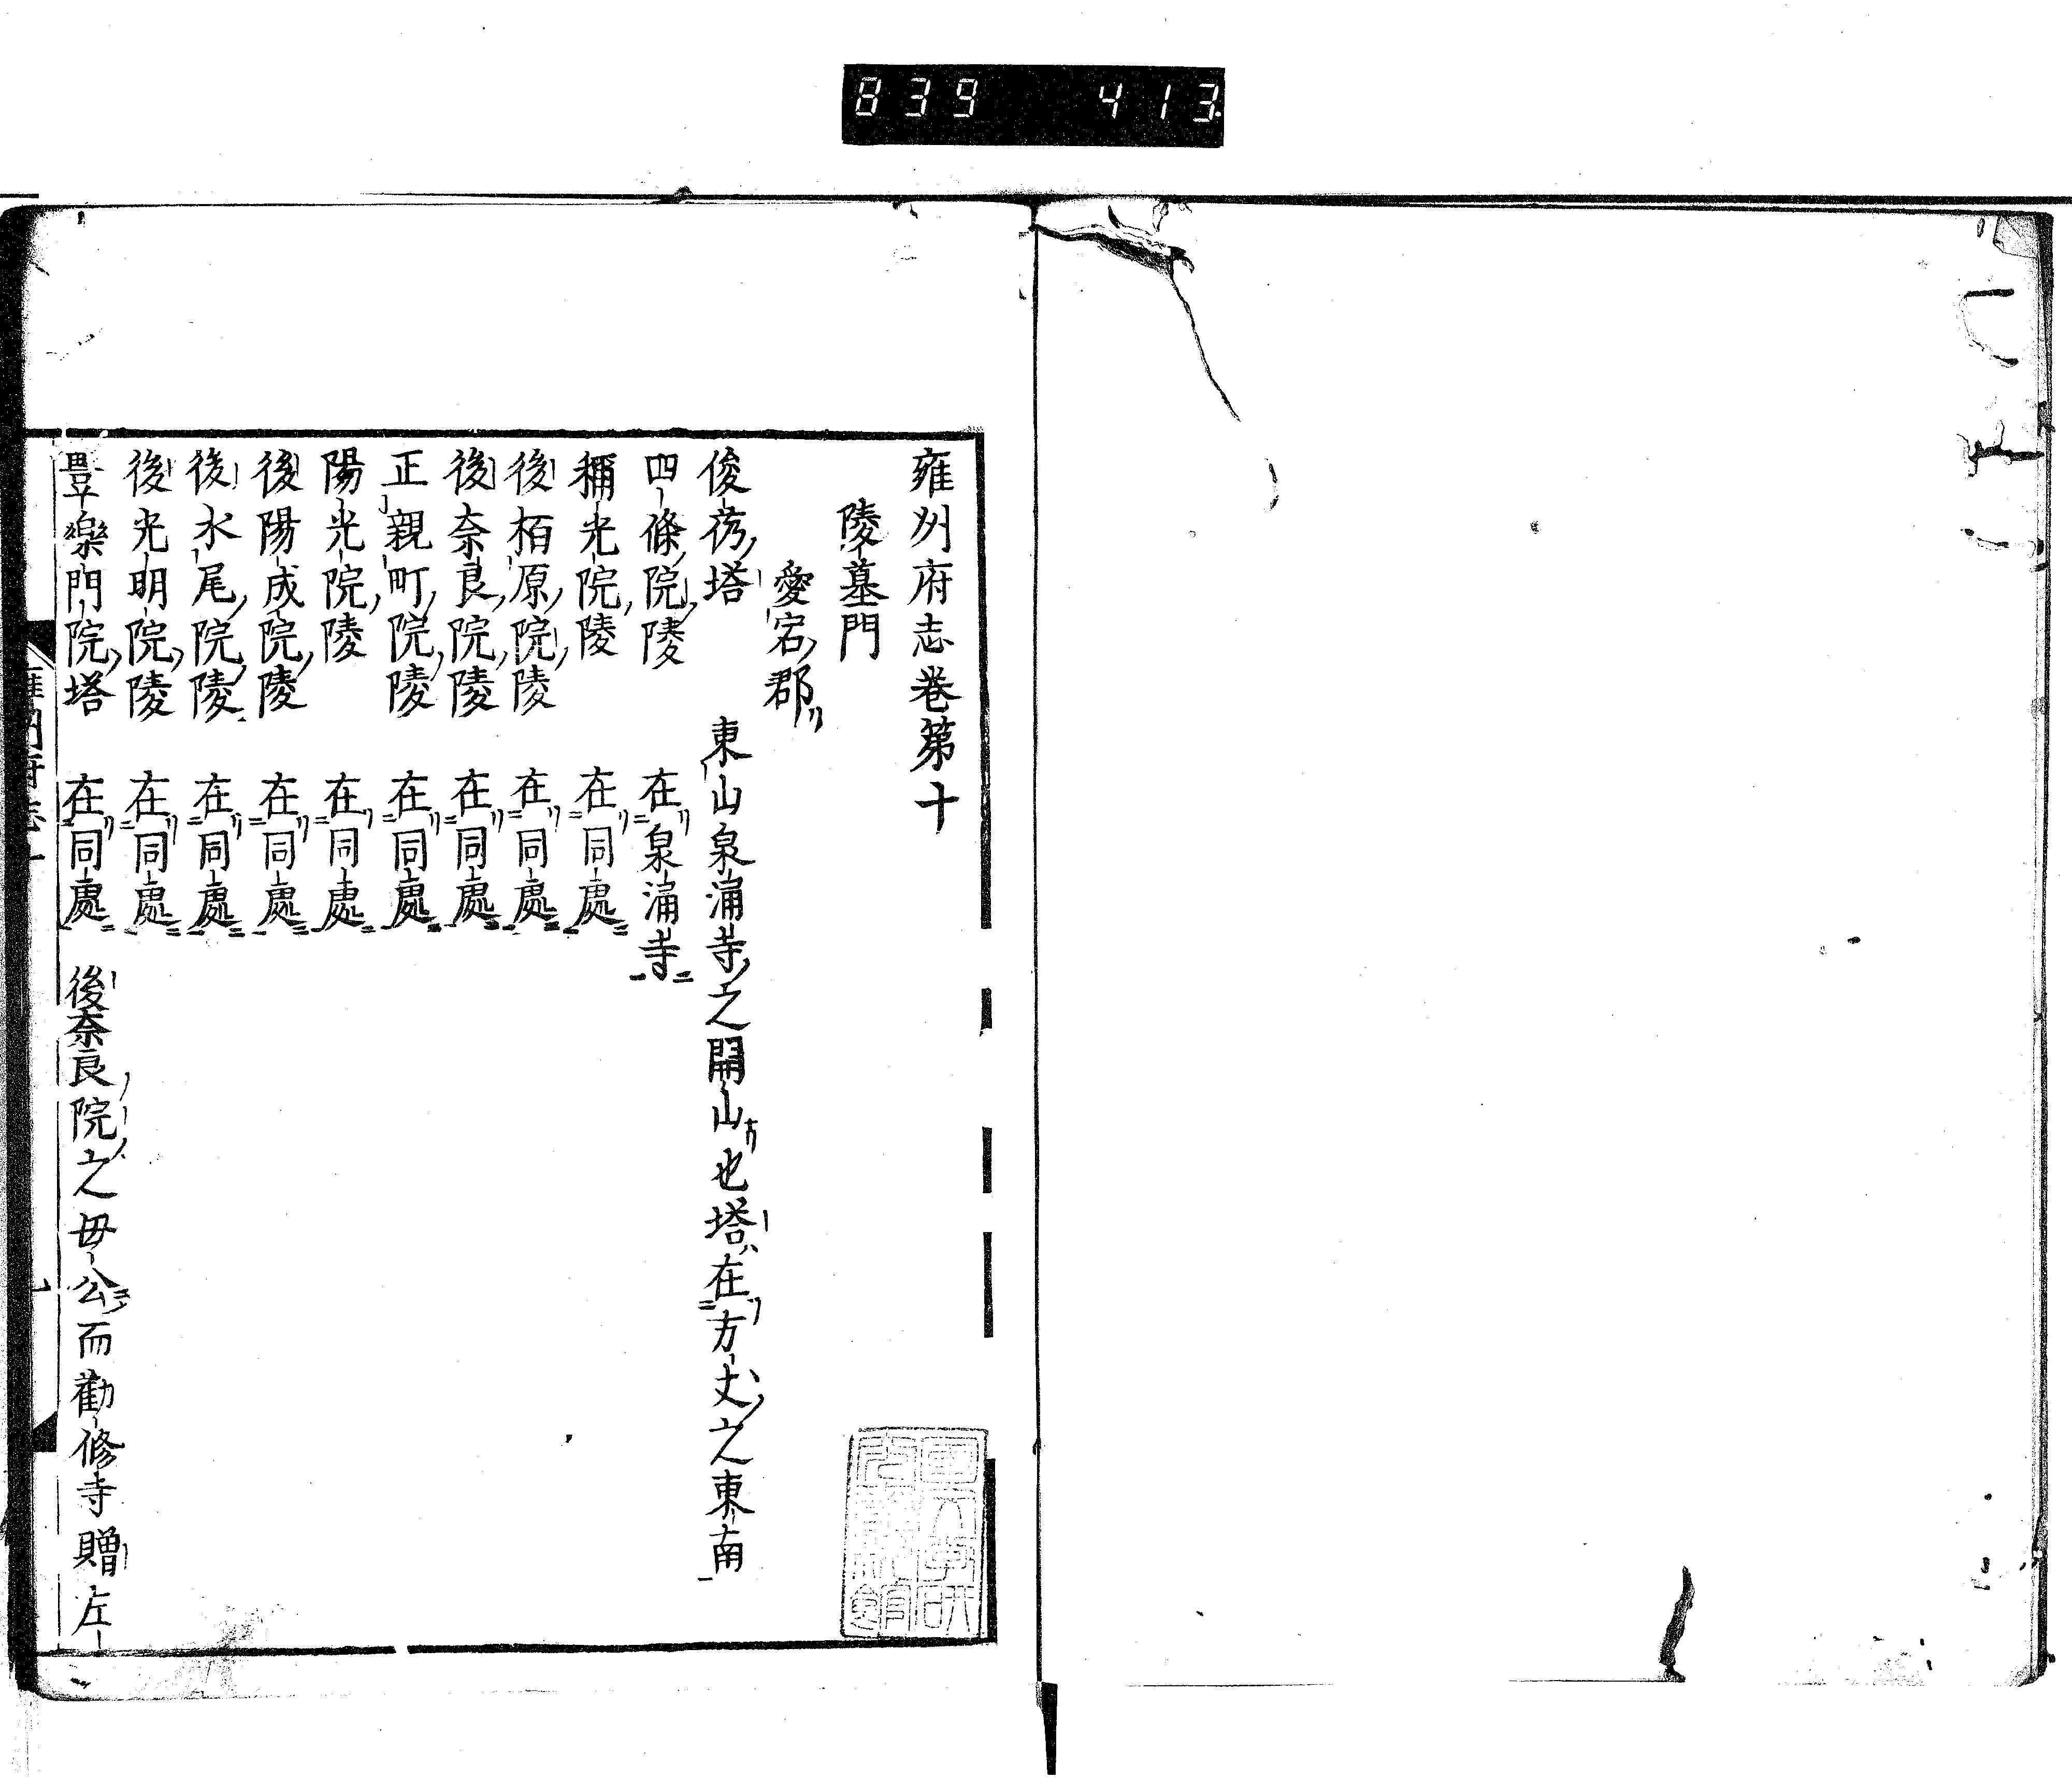 839 413
雍州府志巻第十
陵墓門
愛宕郡
俊芿塔 東山泉涌寺之開山也塔在方丈之東南
四條院陵 在泉涌寺
稱光院陵 在同處
後栢原院陵 在同處
後奈良院陵 在同處
正親町院陵 在同處
陽光院陵 在同處
後陽成院陵 在同處
後水尾院陵 在同處
後光明院陵 在同處
豊樂門院塔 在同處 後奈良院之母公而勸修寺贈左